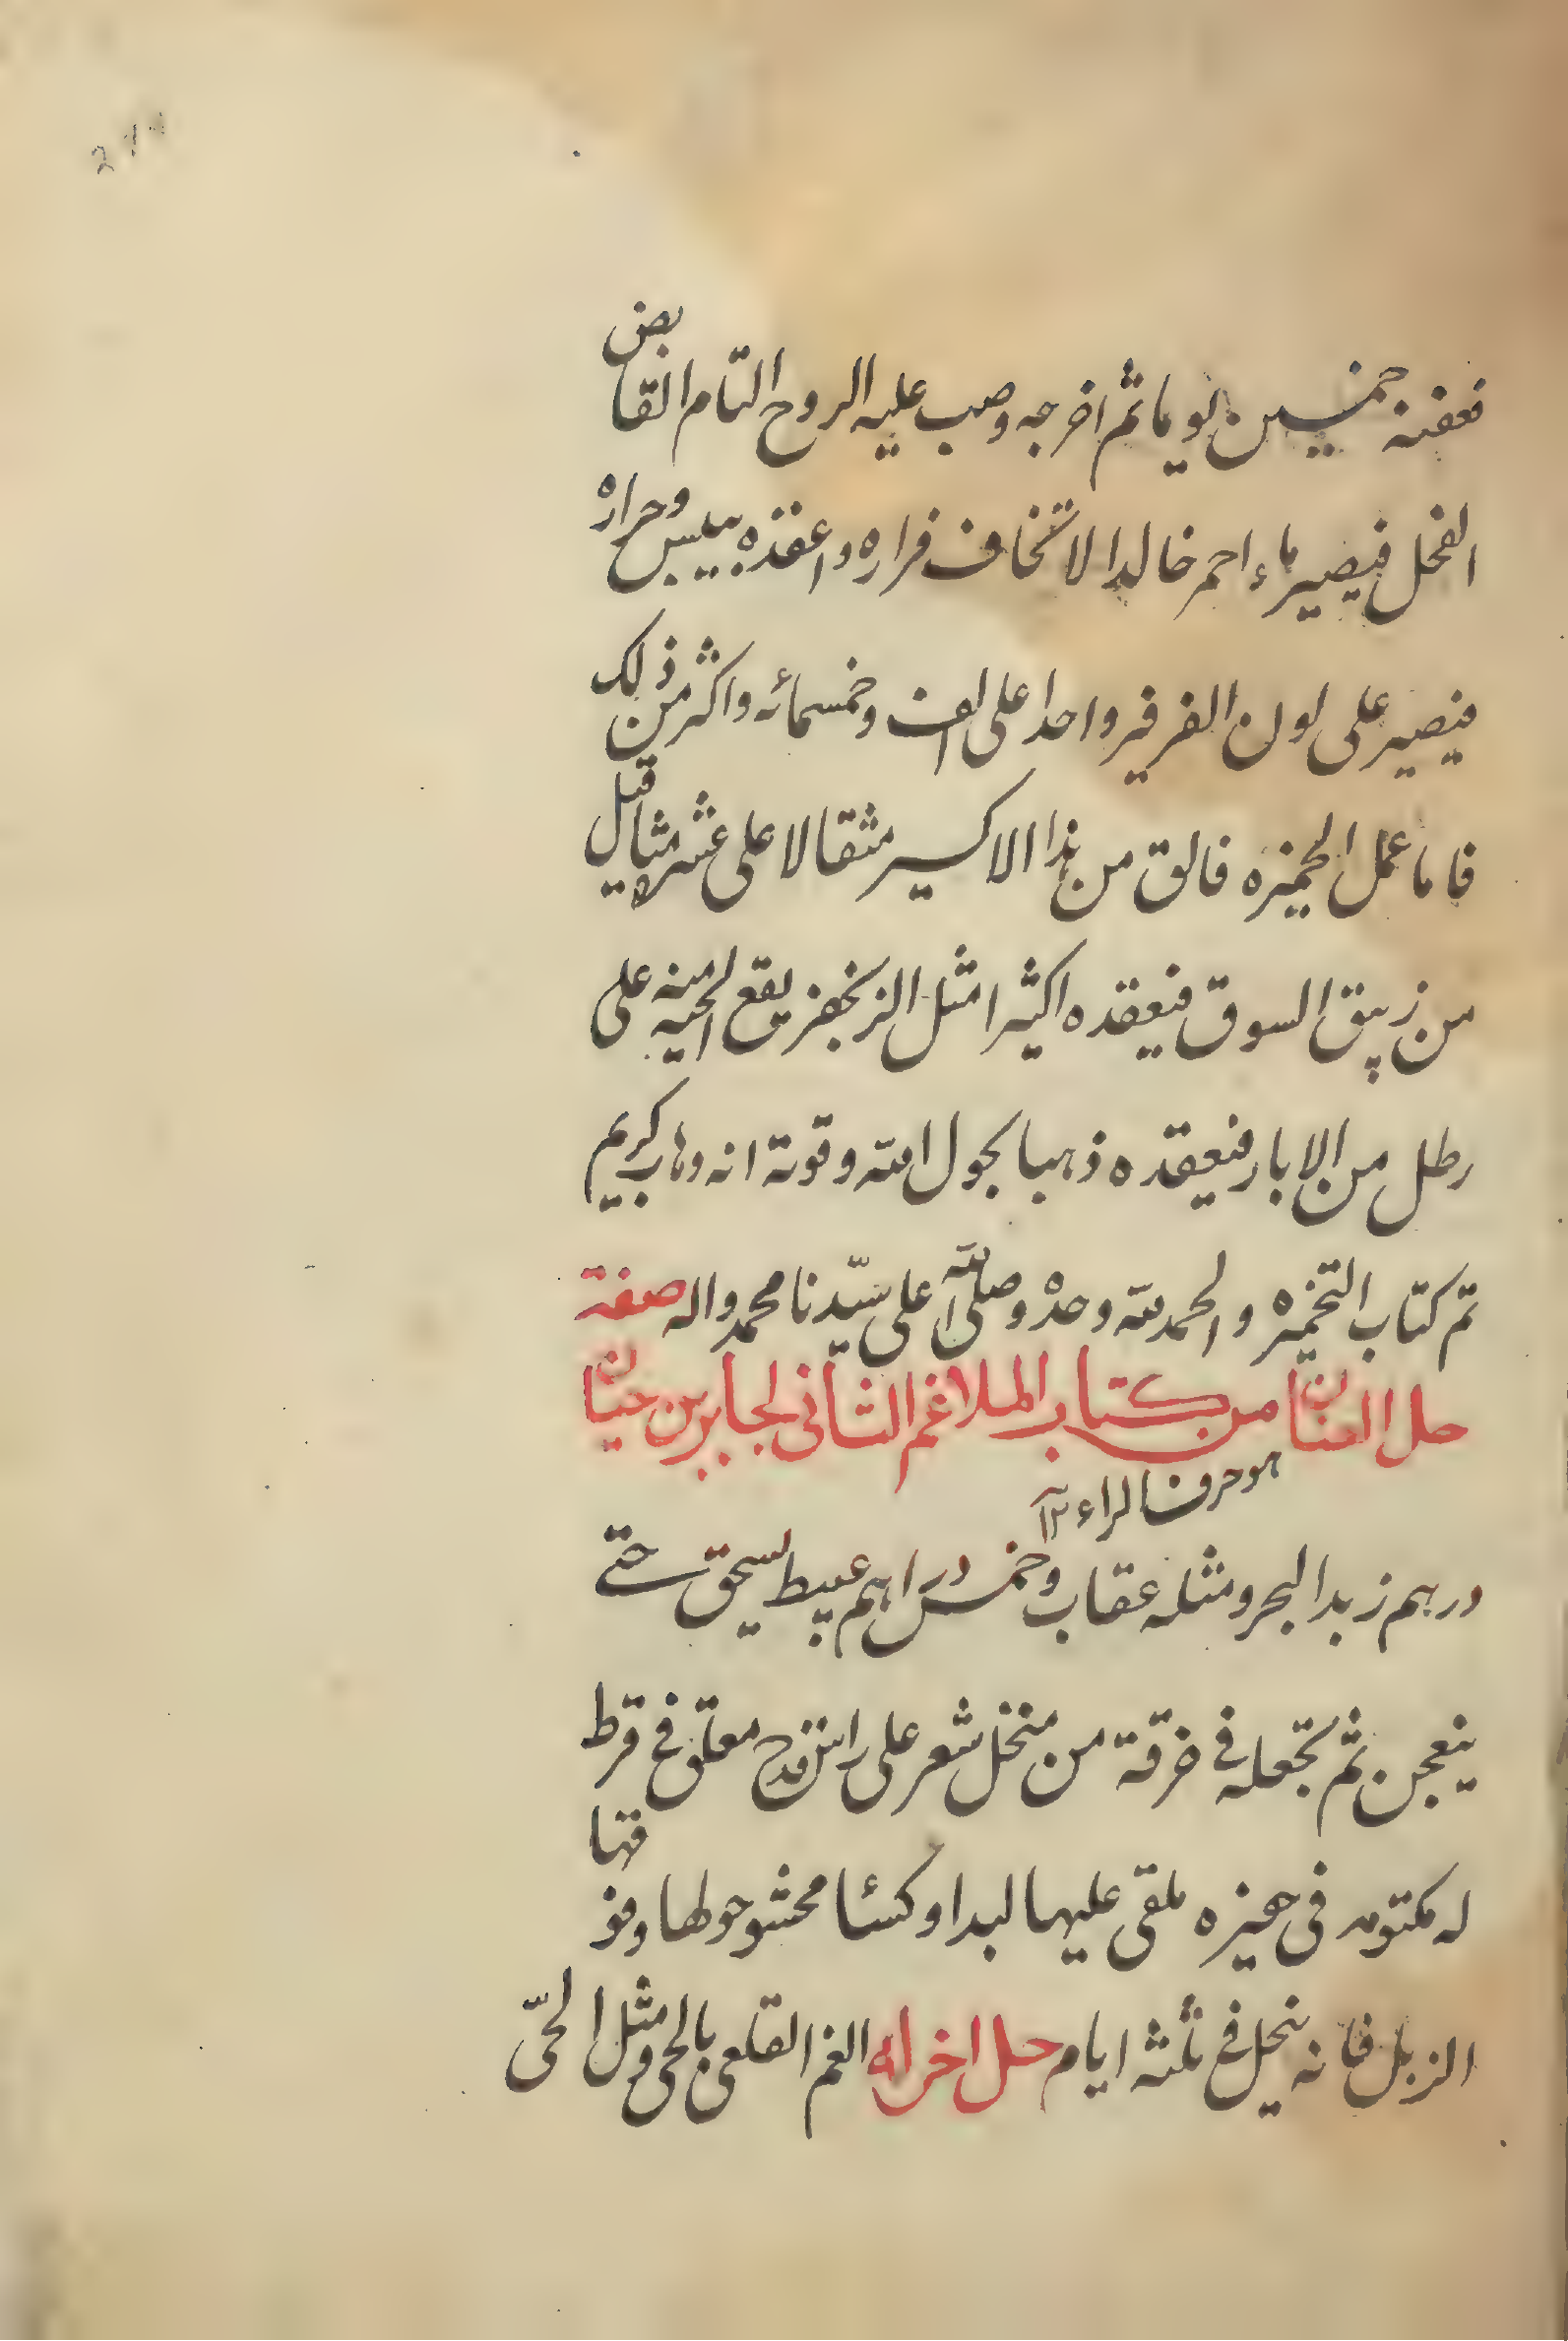 فعفنه خمسين يوما ثم اخرجه وصب عليه الروح التام القابض
الفحل فيصير ماء احمر خالدا لا تخاف فراره واعقده بيبس وحراره
فيصير على لون الفرفير واحدا على الف وخمسمائه واكثر من ذلك
فاما عمل الخميره فالق من هذا الاكسير مثقالا على عشره مثاقيل
من زيبق السوق فيعقده اكثيرا مثل الزنجفر يقع الحبه منه على
رطل من الابار فيعقده ذهبا بحول الله وقوته انه وهاب كريم
تم كتاب التخميره والحمد لله وحده وصلى الله على سيّدنا محمد واله صفة
حل من كتاب الملاغم الثانى لجابر بن حيّان
هو حرف الراء
درهم زبد البحر ومثله عقاب وخمس دراهم عبيط يسحق حتى
ينعجن ثم تجعله فى خرقة من منخل شعر على راس قدح معلق فى قرط
له مكتومه فى حفيره ملقى عليها لبد او كسئا محشو حولها وفوقها
الزبل فانه ينحل فى ثلثه ايام حل اخر له الغم القلعى بالحى ومثل الحىّ